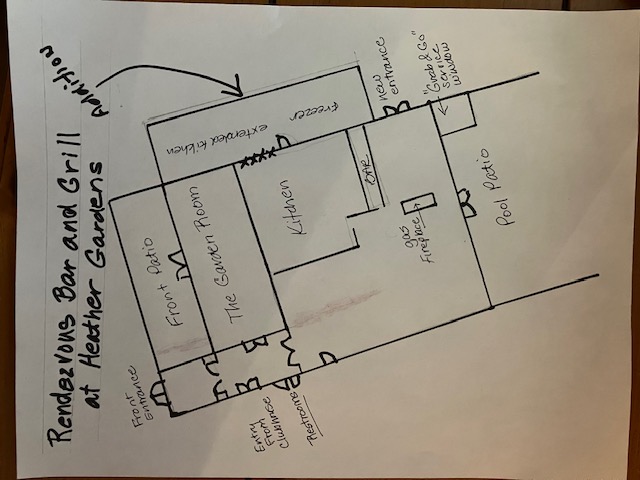 Rendezvous Bar and Grill
at Heather Gardens
Addition
freezer
extended kitchen
new
entrance
"Grab & Go"
service
window
BAR
Kitchen
The Garden Room
Front Patio
gas
Fireplace
Pool Patio
Front
Entrance
Entry
From
Clubhouse
Restrooms